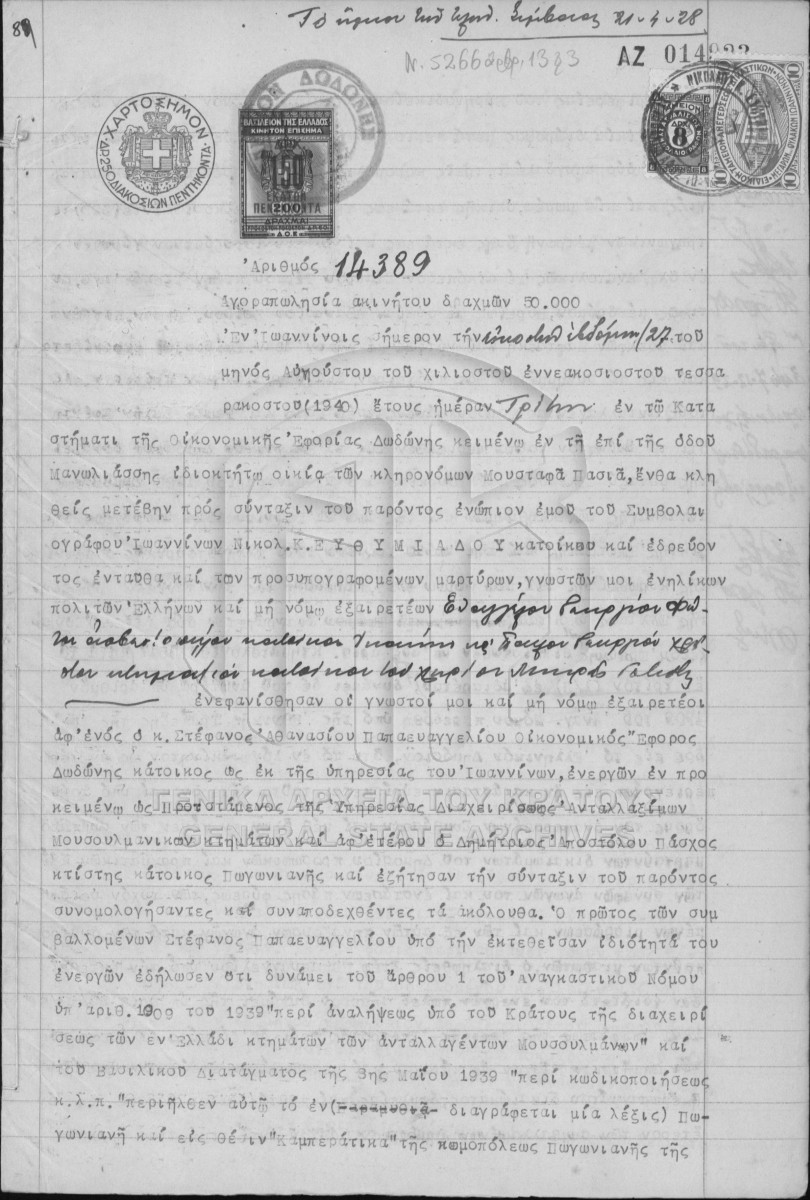 89
21-4-28
Ν. 5266
ΑΖ 014
ΧΑΡΤΟΣΗΜΟΝ
ΔΡ 250 ΔΙΑΚΟΣΙΩΝ ΠΕΝΤΗΚΟΝΤΑ
ΔΩΔΩΝΗΣ
ΒΑΣΙΛΕΙΟΝ ΤΗΣ ΕΛΛΑΔΟΣ
ΚΙΝΗΤΟΝ ΕΠΙΣΗΜΑ
150
ΕΚΑΤΟΝ
ΠΕΝΤΗΚΟΝΤΑ
200
ΔΡΑΧΜΑΙ
8
10
Ἀριθμός 14389
Αγοραπωλησία ακινήτου δραχμῶν 50.000
Ἐν Ἰωαννίνοις σήμερον τήν εἰκοστήν ἑβδόμην/27 τοῦ
μηνός Αὐγούστου τοῦ χιλιοστοῦ ἐννεακοσιοστοῦ τεσσα
ρακοστοῦ(1940) ἔτους ἡμέραν Τρίτην ἐν τῷ Κατα
στήματι τῆς Οἰκονομικῆς Ἐφορίας Δωδώνης κειμένῳ ἐν τῇ ἐπί τῆς ὁδοῦ
Μανωλιάσσης ἰδιοκτήτῳ οἰκίᾳ τῶν κληρονόμων Μουσταφᾶ Πασιᾶ, ἔνθα κλη
θείς μετέβην πρός σύνταξιν τοῦ παρόντος ἐνώπιον ἐμοῦ τοῦ Συμβολαι
ογράφου Ἰωαννίνων Νικολ.Κ.ΕΥΘΥΜΙΑΔΟΥ κατοίκου καί ἑδρεύον
τος ἐνταῦθα καί τῶν προσυπογραφομένων μαρτύρων,γνωστῶν μοι ἐνηλίκων
πολιτῶν Ἑλλήνων καί μή νόμῳ ἐξαιρετέων Εὐαγγέλου Γεωργίου
Γεωργίου
κτηματίου κατοίκου τοῦ χωρίου
ἐνεφανίσθησαν οἱ γνωστοί μοι καί μή νόμῳ ἐξαιρετέοι
ἀφ'ἑνός ὁ κ.Στέφανος Ἀθανασίου Παπαευαγγελίου Οἰκονομικός Ἔφορος
Δωδώνης κάτοικος ὡς ἐκ τῆς ὑπηρεσίας του Ἰωαννίνων,ἐνεργῶν ἐν προ
κειμένῳ ὡς Προϊστάμενος τῆς Ὑπηρεσίας Διαχειρίσεως Ἀνταλλαξίμων
ΓΕΝΙΚΑ ΑΡΧΕΙΑ ΤΟΥ ΚΡΑΤΟΥΣ
GENERAL STATE ARCHIVES
Μουσουλμανικῶν κτημάτων καί ἀφ'ἑτέρου ὁ Δημήτριος Ἀποστόλου Πάσχος
κτίστης κάτοικος Πωγωνιανῆς καί ἐζήτησαν τήν σύνταξιν τοῦ παρόντος
συνομολογήσαντες καί συναποδεχθέντες τά ἀκόλουθα. Ὁ πρῶτος τῶν συμ
βαλλομένων Στέφανος Παπαευαγγελίου ὑπό τήν ἐκτεθεῖσαν ἰδιότητά του
ἐνεργῶν ἐδήλωσεν ὅτι δυνάμει τοῦ ἄρθρου 1 τοῦ Ἀναγκαστικοῦ Νόμου
ὑπ'ἀριθ.1909 τοῦ 1939 "περί ἀναλήψεως ὑπό τοῦ Κράτους τῆς διαχειρί
σεως τῶν ἐν Ἑλλάδι κτημάτων τῶν ἀνταλλαγέντων Μουσουλμάνων" καί
τοῦ Βασιλικοῦ Διατάγματος τῆς 8ης Μαΐου 1939 "περί κωδικοποιήσεως
κ.λ.π."περιῆλθεν αὐτῷ τό ἐν(Παραμυθιᾷ διαγράφεται μία λέξις) Πω-
γωνιανῇ καί εἰς θέσιν "Καμπεράτικα" τῆς κωμοπόλεως Πωγωνιανῆς τῆς